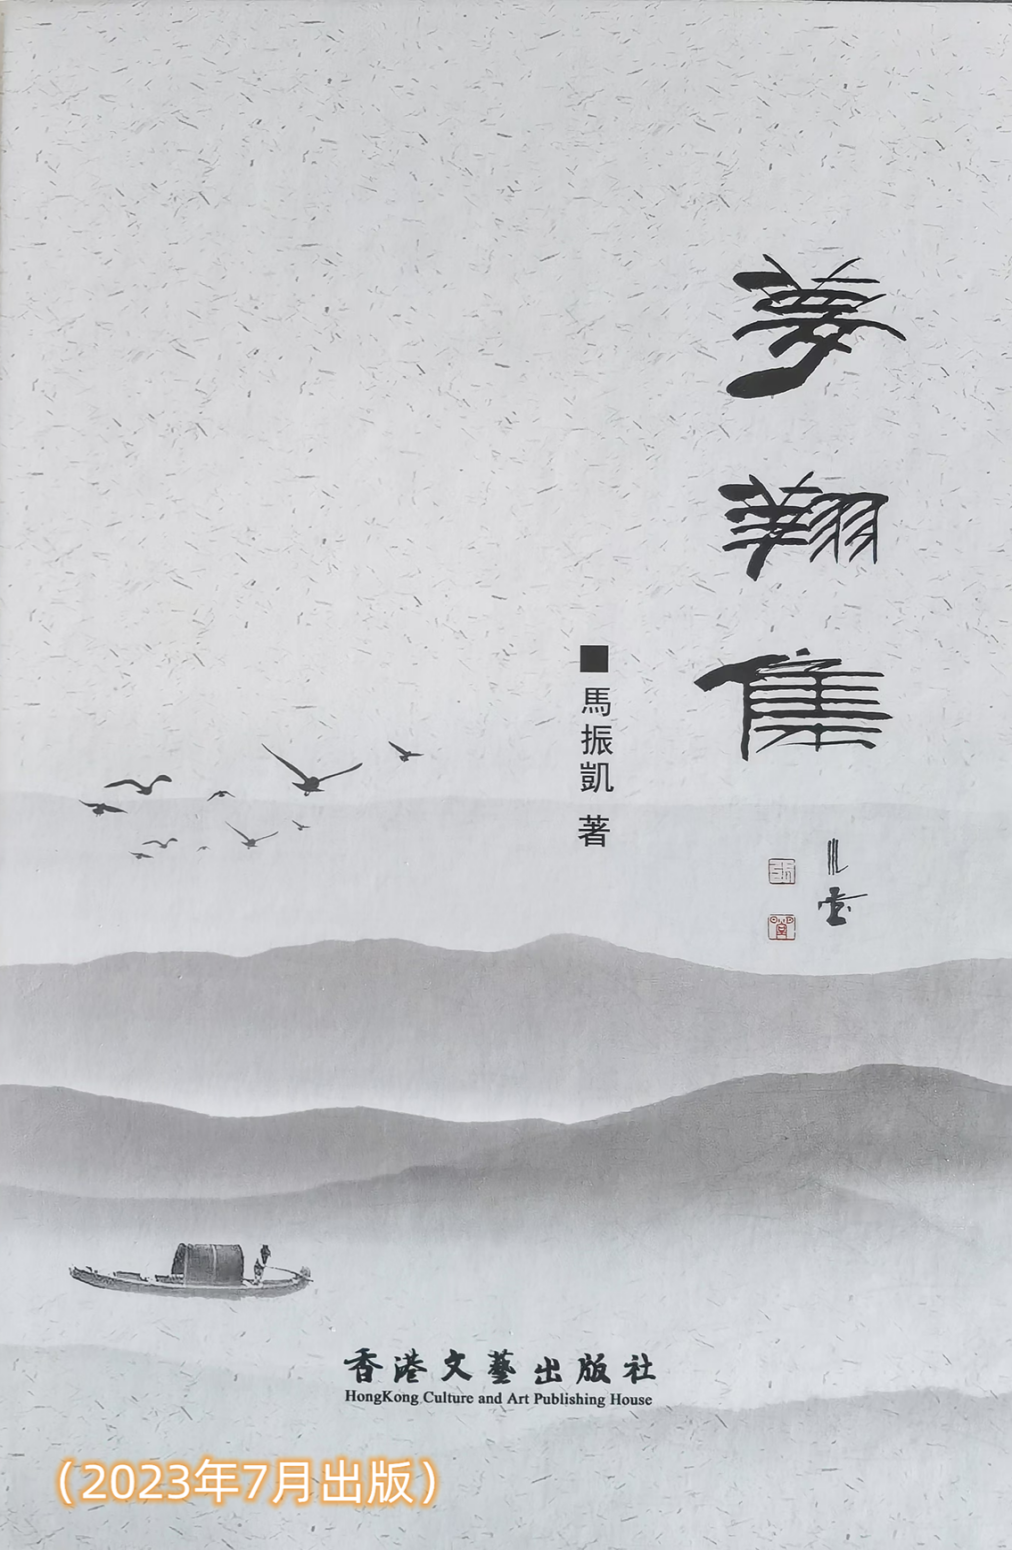 夢翔集
■馬振凱 著
香港文藝出版社
HongKong Culture and Art Publishing House
（2023年7月出版）